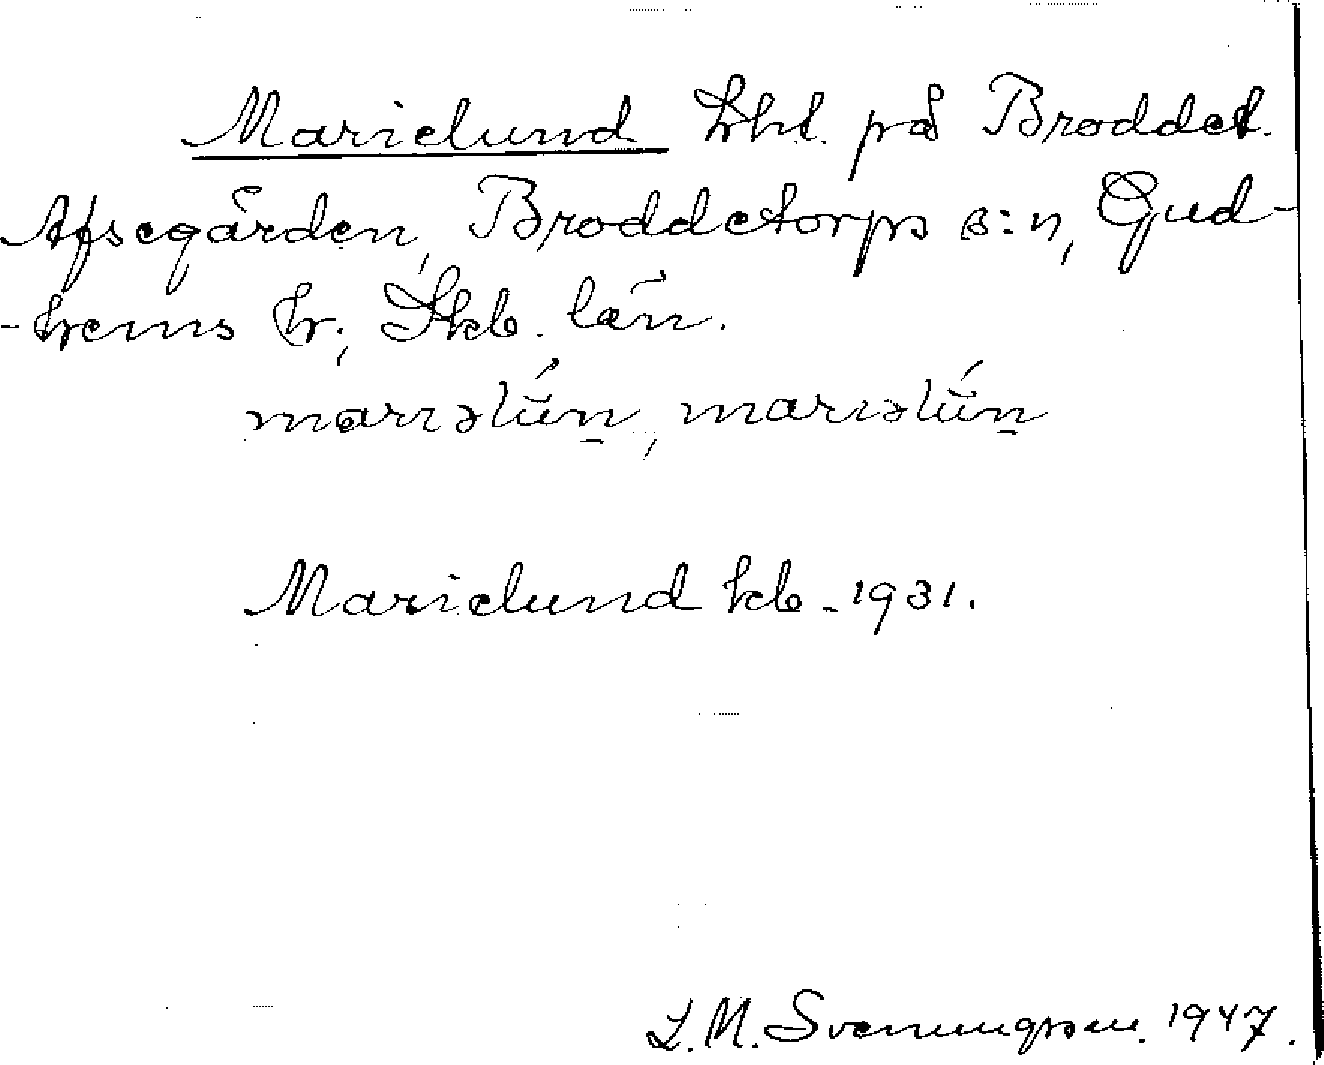 Marielund lht. på Broddet.
Afsegården, Broddetorps s:n, Gud-
-hems hr; Skb. län.
marıəlún̠, marıəlún̠
Marielund kb. 1931.
L. M. Svenungsson. 1947.